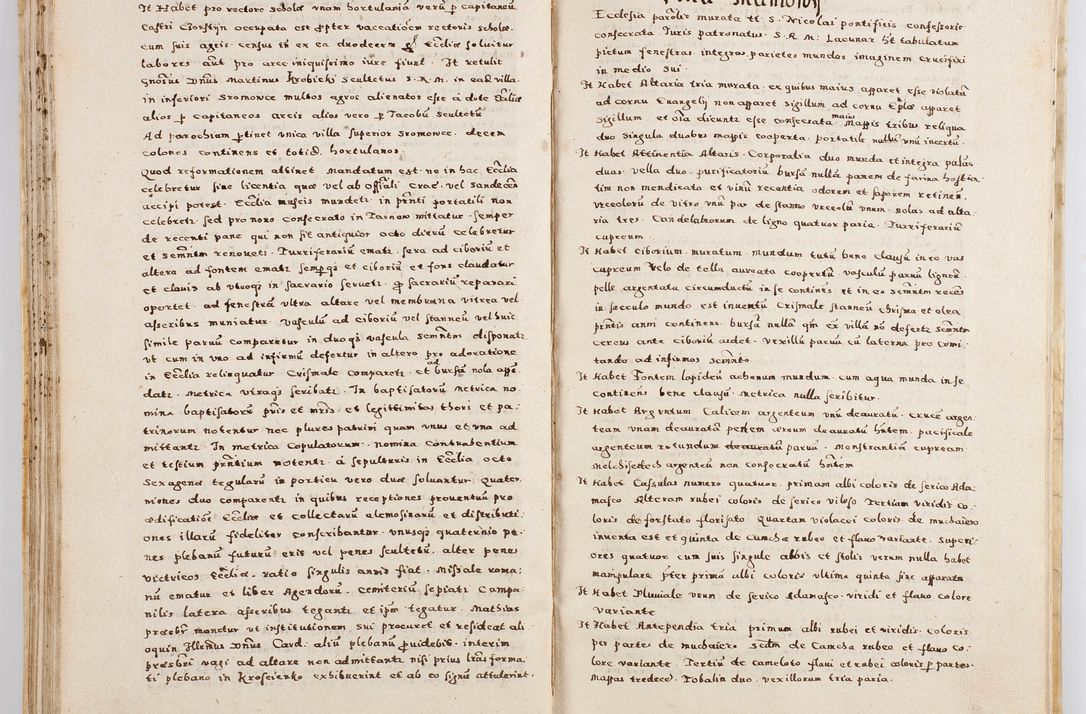 It Habet pro rectore scholæ vnam hortulaniã verũ p capitaneũ
Castri Czorstyn occupata est propter vaccatioẽm rectoris scholæ.
cum suis agris census tñ ex ea duodecem gl Eccliæ soluitur
labores aũt pro arce iniquissimo iure fiunt. It retulit
gnõsus Dnũs Martinus Krobicki scultetus S. R. M. in eadẽ villa.
in inferiori Sromowce multos agros alienatos esse á dote Eccliæ
alios p capitaneos arcis alios vero p Iacobũ scultetũ
Ad parochium ptinet vnica villa superior Sromowce. decem
colonos continens et totid. hortulanos.
Quod reformationem attinet mandatum est ne in hac Ecclia
celebretur sine licentia quæ vel ab Offiãli Crac. vel Sandecẽn
accipi potest. Ecclia muscis mundetr in pñti portatili non
celebretr sed pro nouo consecrato in Tarnow mittatur. semper
de recenti pane qui non sit antiquior octo dierũ celebretur
et semñtm renouetr. Turriferariũ ematr. sera ad ciboriũ et
altera ad fontem ematr sempqz et ciboriũ et fons claudatur
et clauis ab vtroqz in sacrario seruetr. p sacrariũ reparari
oportet. ad fenestrã vltra altare vel membrana vitrea vel
asseribus muniatur. Vasculũ ad ciboriũ vel stanneũ vel huic
simile paruũ comparetur in duoqz vascula semñtm disponatr
vt cum in vno ad infirmũ defertur in altero pro adoratione
in Ecclia relinquatur. Crismale comparetr. et ad bursã nola appẽ
datr. Metrica vtraqz scribatr. In baptisatorũ metrica no
mina baptisatorũ pris et mris et legittimitas thori et pa:
trinorum notentur nec plures patrini quam vnus et vna ad
mittantr. In metrica Copulatorum. nomina contrahentium
et testium pñtium notentr. á sepulturis in Ecclia octo
sexagenæ tegularũ in porticu vero duæ soluantur. Quater
niones duo comparentr in quibus receptiones prouentuũ pro
ædificatioẽ Eccliæ et collectarũ elemosinarũ et distributi
ones illarũ fideliter conscribantur. vnusqz quaternio pe:
nes plebanũ futurũ erit vel penes scultetũ. alter penes
victricos Eccliæ. ratio singulis annis fiat. Missale roma:
nũ ematur et liber Agendorũ. Cemiteriũ sepiatr Campa
nilis latera asseribus tegantr et ipm tegatur. Mathias
præsbr monetur vt institutionem sui procuret et resideat ali
oquin Illrmus Dnũs Card. aliũ plebanũ puidebit. interim
præsbri vagi ad altare non admittantr nisi prius lrãs forma
ti plebano in Kroscienko exhibuerint et ab eo signũ attulerint.
Ecclesia parolis murata tt S. Nicolai pontificis confessoris
consecrata. Iuris patronatus. S. R. M. Lacunar ht tabulatum
pictum fenestras integras parietes mundos imaginem crucifixi
in medio sui.
It Habet Altaria tria murata. ex quibus maius apparet esse violatũ
ad cornu Euangelij non apparet sigillum ad cornu Eplæ apparet
sigillum. et oĩa dicuntr esse consecrata. maius Mappis tribus reliqua
duo singula duabus mappis cooperta. portatile nullũ vnũ incertũ.
It Habet Attinentia Altaris. Corporalia duo munda et integra palas
duas. vella duo. purificatoriũ bursã nullã panem de farina hostia
tim non mendicata et vinũ recentia odorem et saporem retinen.
Vrceolorũ de vitro vnũ par de stanno vrceolũ vnum. Nolas ad alta:
ria tres. Candelabrorum de ligno quatuor paria. Turriferariũ
cupreum
It Habet Ciborium. muratum. mundum tutũ bene clausũ in eo vas
cupreum Velo de tolla aureata coopertũ. vasculũ paruũ ligneũ.
pelle argentata circumductũ in se continẽs et in eo semñtm recẽs
in sacculo mundo est inuentũ Crismale stanneũ chrisma et olea
pñtis anni continens. bursã nullã qm ex villã nõ defertr semñtm
cereus ante ciboriũ ardet. vexillũ paruũ cũ laterna pro comi:
tando ad infirmos semnto
It Habet Fontem lapideũ achenum mundum. cum aqua munda in se
continens bene clausũ. Metrica nulla scribitur.
It Habet Argentum Calicem argenteum vnũ deauratũ. crucẽ argen
team vnam deauratã pectem æreum deauratũ hñtem. pacificale
argenteum rotundum deauratũ paruũ. Monstrantiã cupream.
Melchisedech argenteũ non consecratũ hñtem
It Habet Cassulas numero quatuor. primam albi coloris de serico Ada
masco. Alteram rubei coloris de serico viloso Tertiam viridis co.
loris de forstato florisato Quartam violacei coloris. de muchaiero
inuenta est et quinta de Camcha rubeo et flauo variante. Superi:
ores quatuor cum suis singulæ albis et stolis verum nulla habet
manipulare pter primã albi coloris vltima quinta sine apparatu
It Habet Pluuiale vnum de serico Adamasco. viridi et flauo colore
variante
It Habet Antependia tria primum albi rubei et viridis coloris
per partes de muchaiero secdm de Camcha rubeo et flauo co.
lore variante. Tertiũ de cameloto flaui et rubei coloris p partes
Mappas tredece. Tobalia duo. vexillorum tria paria.